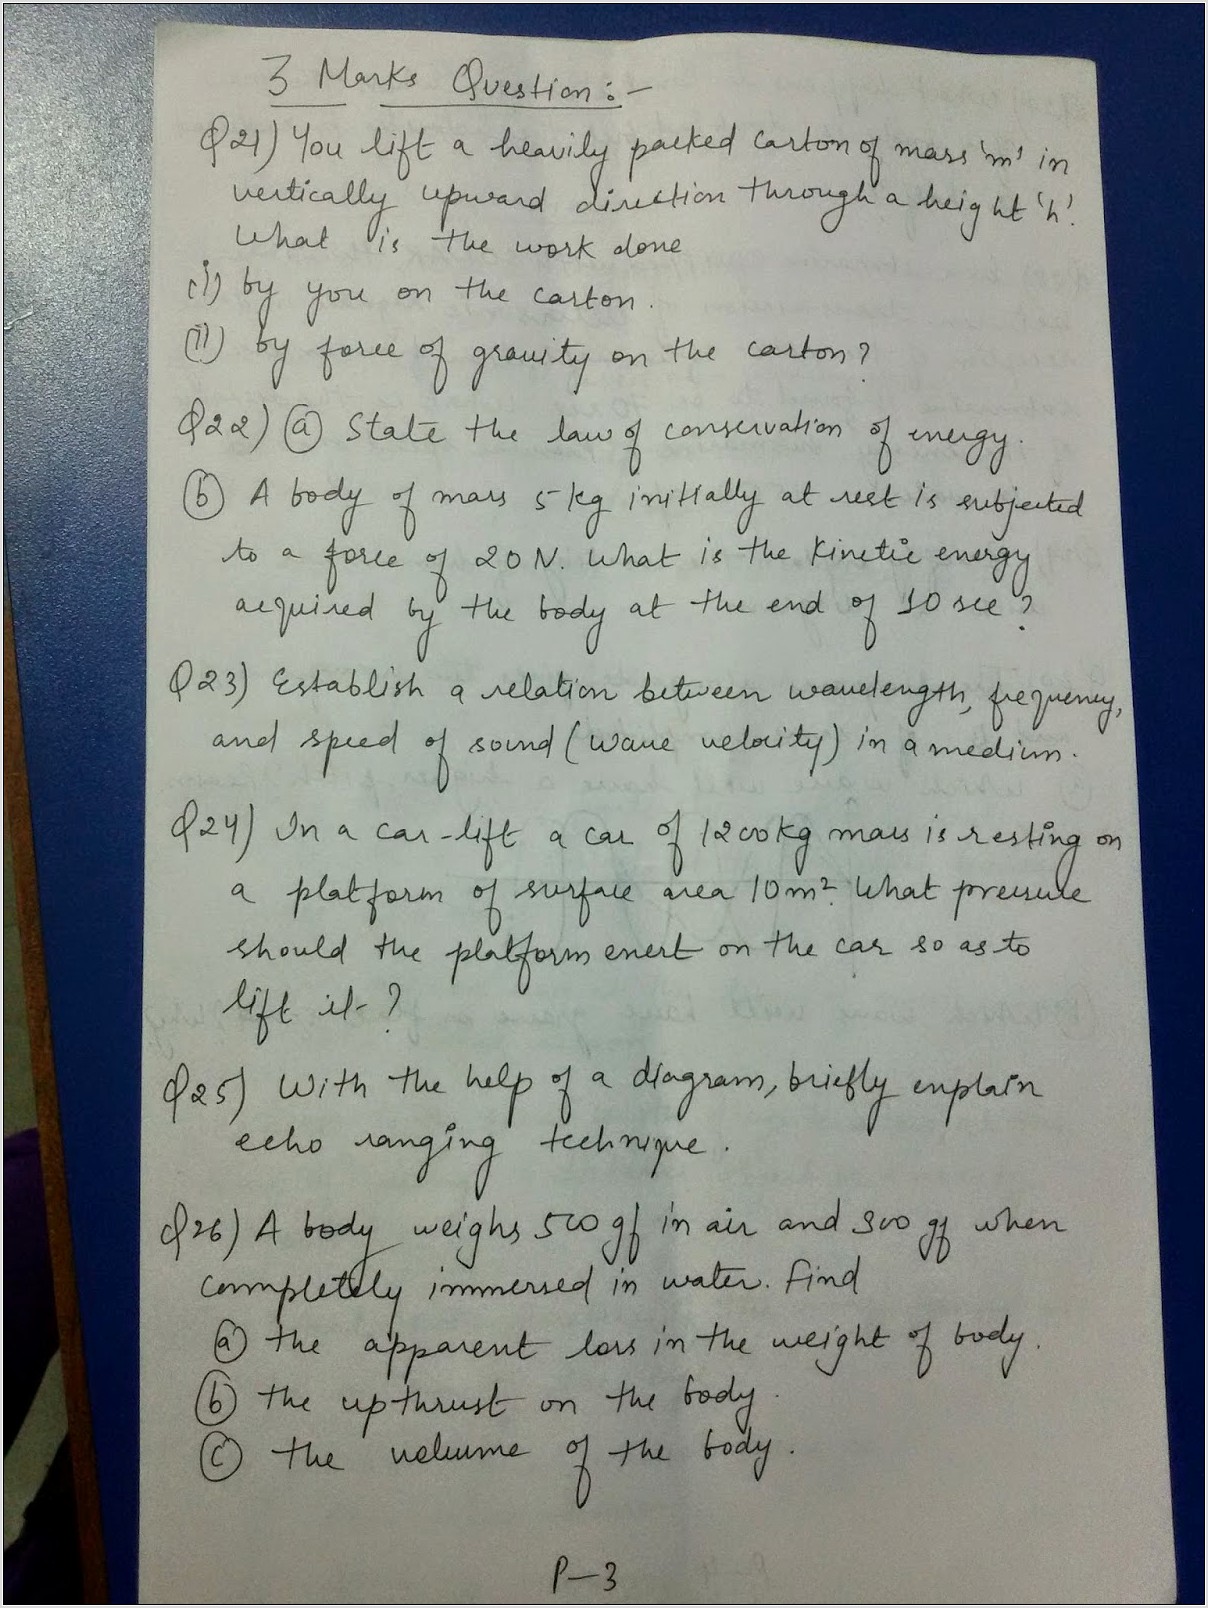 3 Marks Question :-
Q21) You lift a heavily packed carton of mass 'm' in
vertically upward direction through a height 'h'.
What is the work done
(i) by you on the carton.
(ii) by force of gravity on the carton?
Q22) (a) State the law of conservation of energy.
(b) A body of mass 5 kg initially at rest is subjected
to a force of 20 N. What is the kinetic energy
acquired by the body at the end of 10 sec?
Q23) Establish a relation between wavelength, frequency,
and speed of sound (wave velocity) in a medium.
Q24) In a car-lift a car of 1200kg mass is resting on
a platform of surface area 10m². What pressure
should the platform exert on the car so as to
lift it?
Q25) With the help of a diagram, briefly explain
echo ranging technique.
Q26) A body weighs 500 gf in air and 300 gf when
completely immersed in water. Find
(a) the apparent loss in the weight of body.
(b) the upthrust on the body.
(c) the volume of the body.
P-3